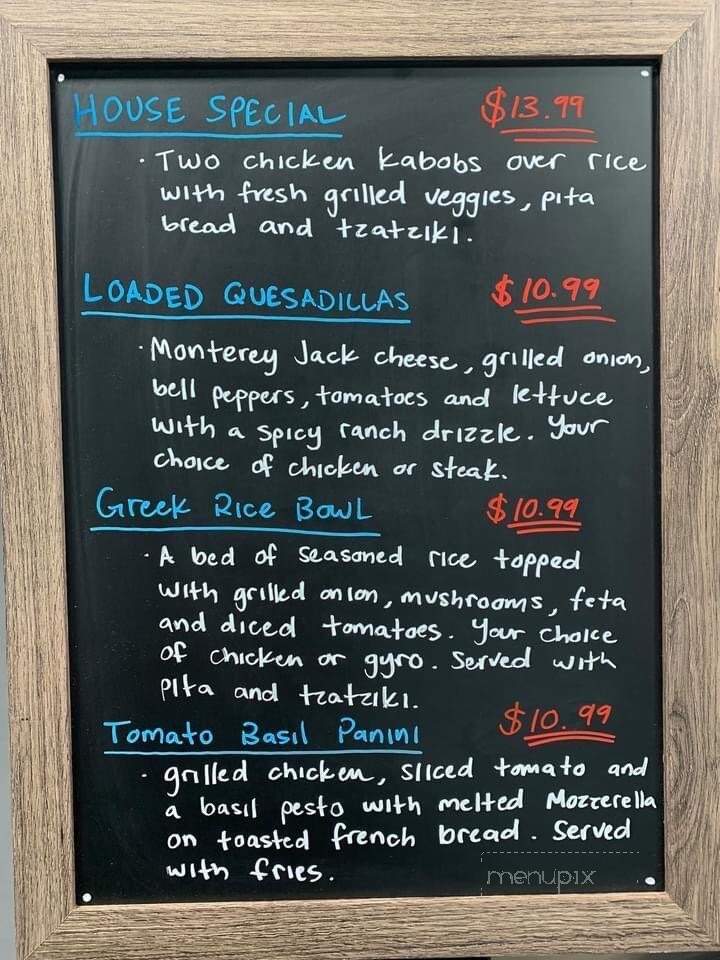 HOUSE SPECIAL $13.99
· Two chicken kabobs over rice
with fresh grilled veggies, pita
bread and tzatziki.
LOADED QUESADILLAS $10.99
· Monterey Jack cheese, grilled onion,
bell peppers, tomatoes and lettuce
with a spicy ranch drizzle. Your
choice of chicken or steak.
Greek Rice Bowl $10.99
· A bed of seasoned rice topped
with grilled onion, mushrooms, feta
and diced tomatoes. Your choice
of chicken or gyro. Served with
pita and tzatziki.
Tomato Basil Panini $10.99
· grilled chicken, sliced tomato and
a basil pesto with melted Mozzerella
on toasted french bread. Served
with fries.
menupix